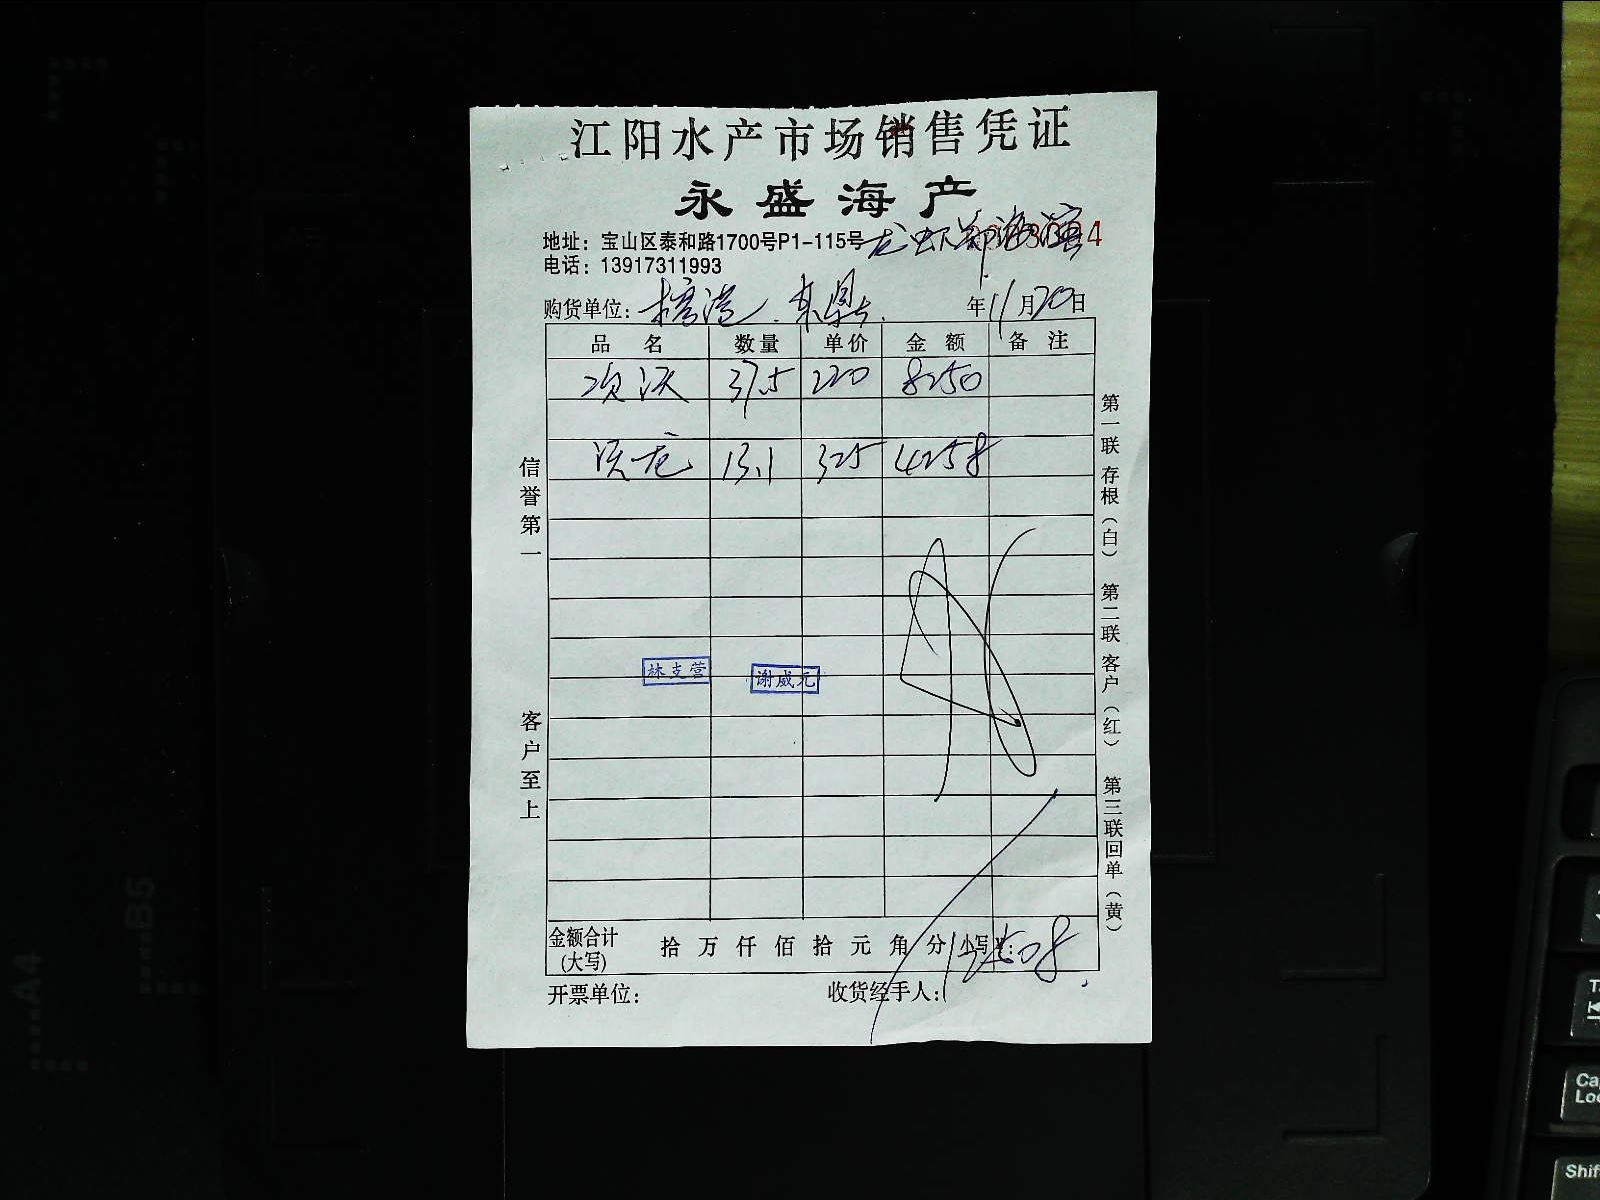 江阳水产市场销售凭证
永盛海产
地址：宝山区泰和路1700号P1-115号
电话：13917311993
购货单位： 年11月20日
品名 数量 单价 金额 备注
37.5 220 8250
13.1 325 4258
信誉第一
客户至上
第一联存根（白） 第二联客户（红） 第三联回单（黄）
林支营 谢威元
金额合计(大写) 拾万仟佰拾元角分 小写¥：12508
开票单位： 收货经手人：
B5
A4
Shif